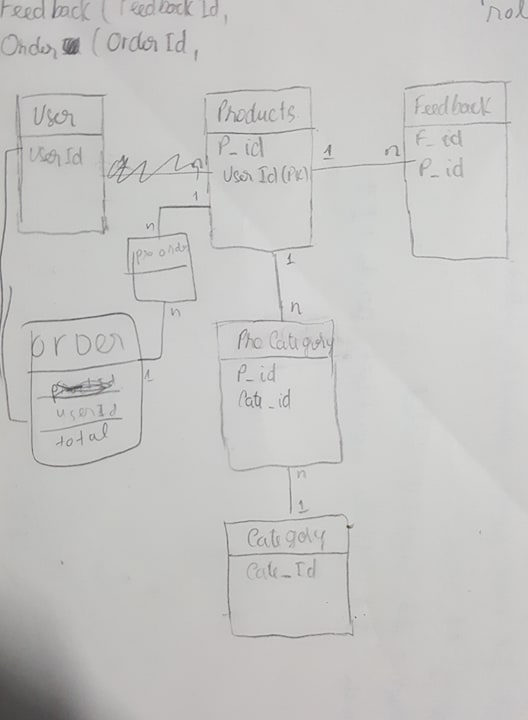 Feedback ( Feedback Id,
Order ( Order Id,
User
User Id
Products
P_id
User Id (PK)
Feedback
F_id
P_id
1
n
n
1
n
pro order
n
1
order
userId
total
1
n
Pro Category
P_id
Cate_id
n
1
Category
Cate_Id